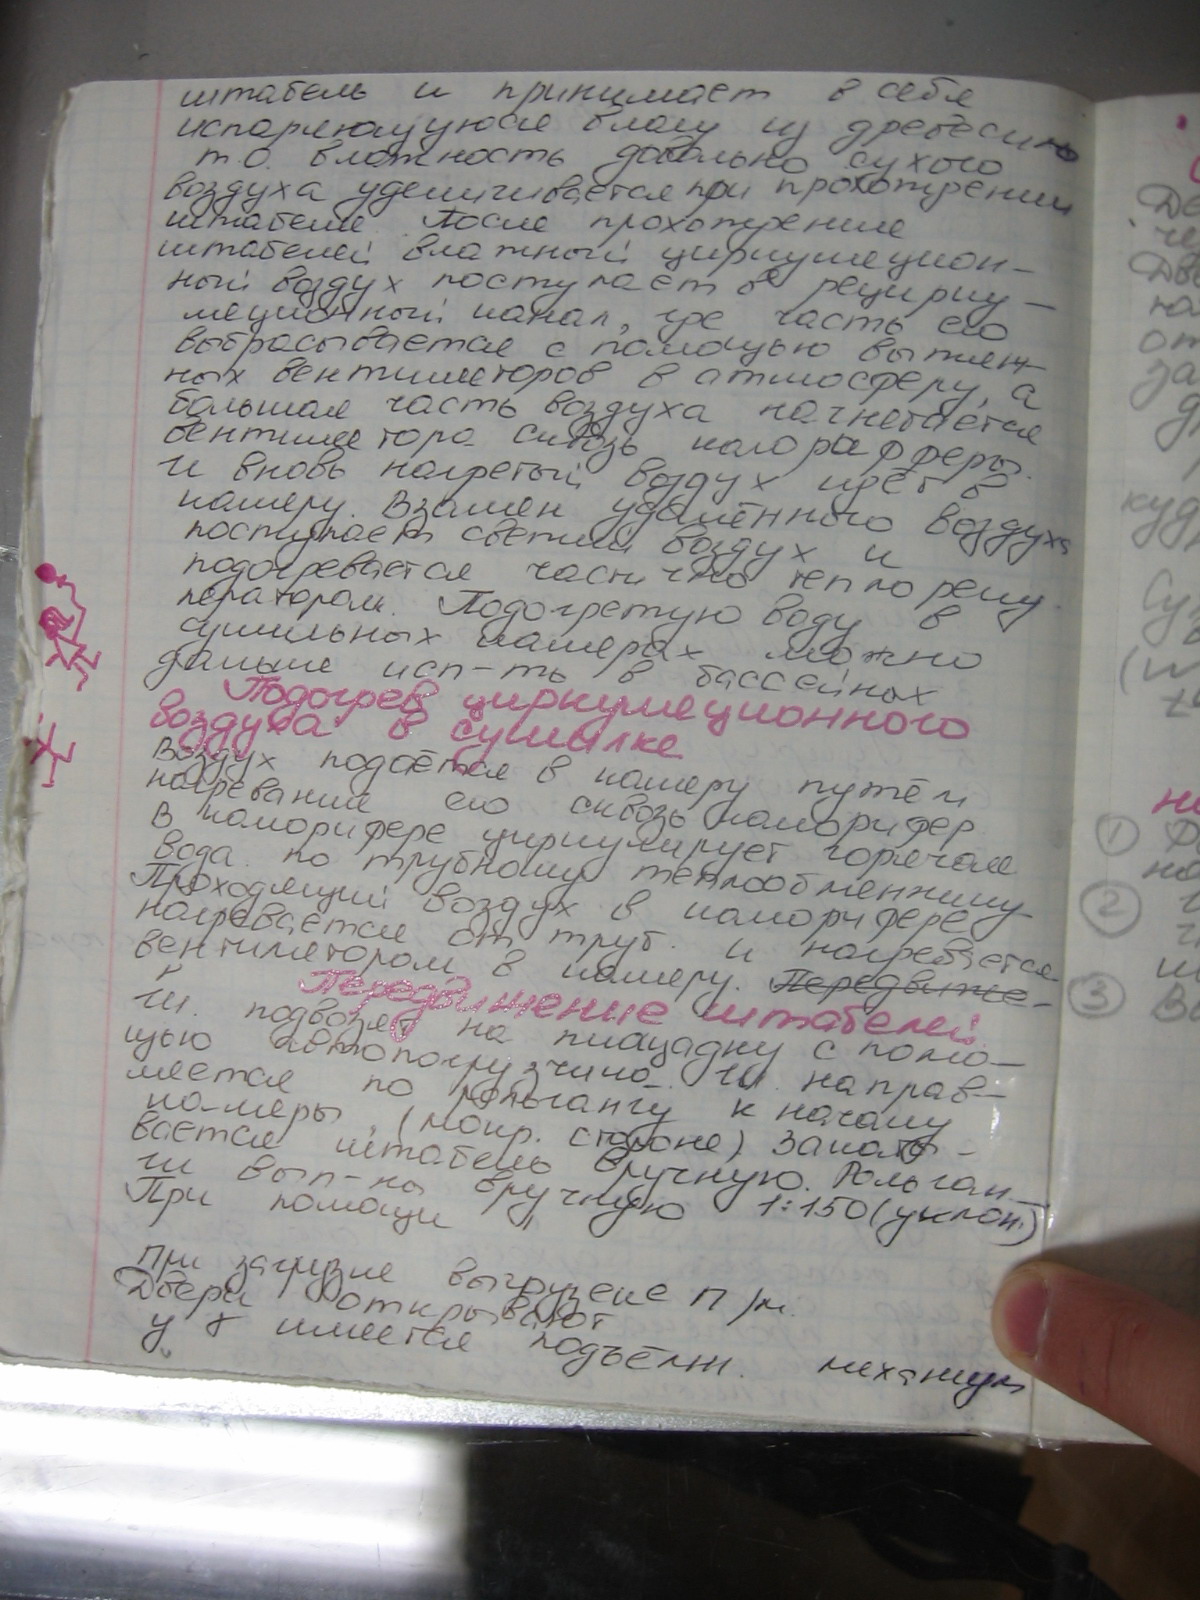 штабель и принимает в себя
испаряющуюся влагу из древесины
т.о. влажность довольно сухого
воздуха увеличивается при прохождении
штабеля. После прохождение
штабелей влажный циркуляцион-
ный воздух поступает в рецирку-
ляционный канал, где часть его
выбрасывается с помощью вытяж-
ных вентиляторов в атмосферу, а
большая часть воздуха нагнетается
вентилятора сквозь калорафферы.
И вновь нагретый воздух идёт в
камеру. Взамен удалённого воздуха
поступает свежий воздух и
подогревается частично теплореку
ператором. Подогретую воду в
сушильных камерах можно
дальше исп-ть в бассейных
Подогрев циркуляционного
воздуха в сушилке
Воздух подаётся в камеру путём
нагревание его сквозь калорифер
В калорифере циркулирует горячая
вода по трубному теплообменнику
Проходящий воздух в калорифере
нагревается от труб. и нагревается
вентилятором в камеру. Передвиже-
Передвижение штабелей
Ш. подвозят на площадку с помо-
щью автопогрузчика. Ш. направ-
ляется по рольгангу к началу
ка-меры, (мокр. стороне) Закаты-
вается штабель вручную. Рольган-
ги вып-ны вручную 1:150 (уклон)
При помощи "
При загрузке выгрузке п/м.
Двери открывают
у имеется подъёмн. механизм
Де
че
Дв
ка
от
за
куд
Су
1
на
2
3 Вы